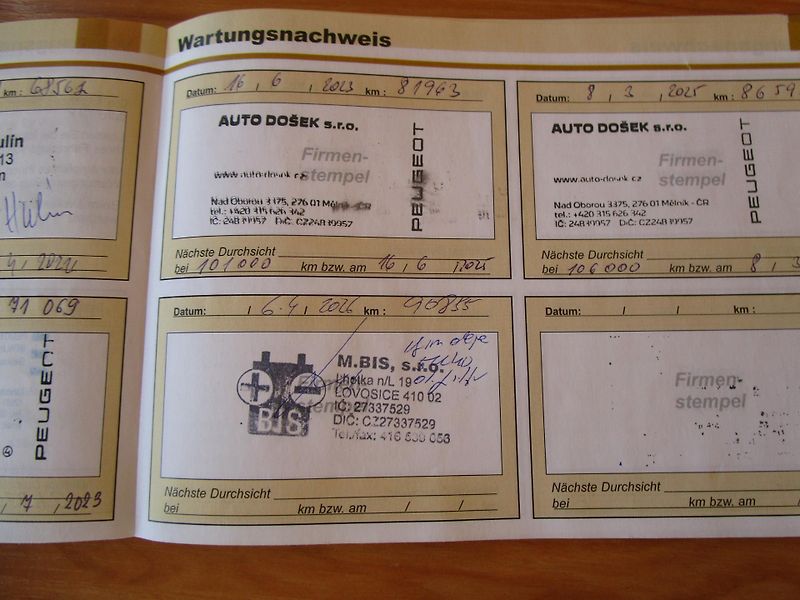 Wartungsnachweis
km: 68562
ulín
13
m
71 069
PEUGEOT
, 7 , 2023
Datum: 16 , 6 , 2023 km: 81963
AUTO DOŠEK s.r.o.
Firmen-
stempel
www.auto-dosek.cz
Nad Oborou 3375, 276 01 Mělník - ČR
tel.: +420 315 626 342
IČ: 24819957 DIČ: CZ24819957
PEUGEOT
Nächste Durchsicht
bei 101 000 km bzw. am 16 , 6 , 2025
Datum: 8 , 3 , 2025 km: 8659
AUTO DOŠEK s.r.o.
Firmen-
stempel
www.auto-dosek.cz
Nad Oborou 3375, 276 01 Mělník - ČR
tel.: +420 315 626 342
IČ: 24819957 DIČ: CZ24819957
PEUGEOT
Nächste Durchsicht
bei 106 000 km bzw. am 8 , 3
Datum: / 6.4 / 2026 km: 90855
M.BIS, s.r.o.
Lhotka n/L 19
LOVOSICE 410 02
IČ: 27337529
DIČ: CZ27337529
Tel./fax: 416 539 053
BIS
Firmen-
stempel
Nächste Durchsicht
bei km bzw. am / /
Datum: / / km:
Firmen-
stempel
Nächste Durchsicht
bei km bzw. am / /